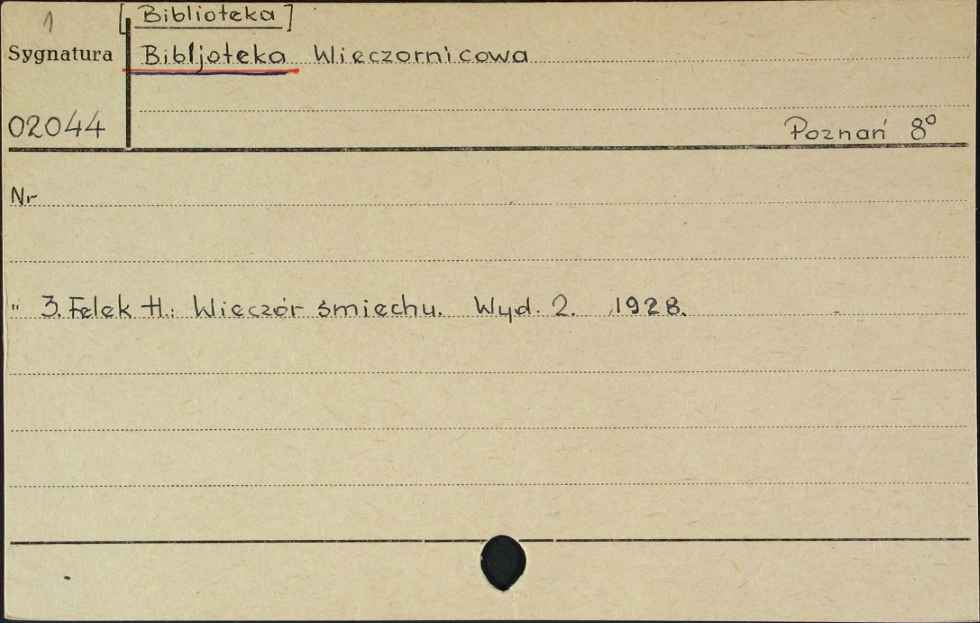 1
[Biblioteka]
Sygnatura Bibljoteka Wieczornicowa
02044 Poznań 8°
Nr
" 3. Felek H.: Wieczór śmiechu. Wyd. 2. 1928.